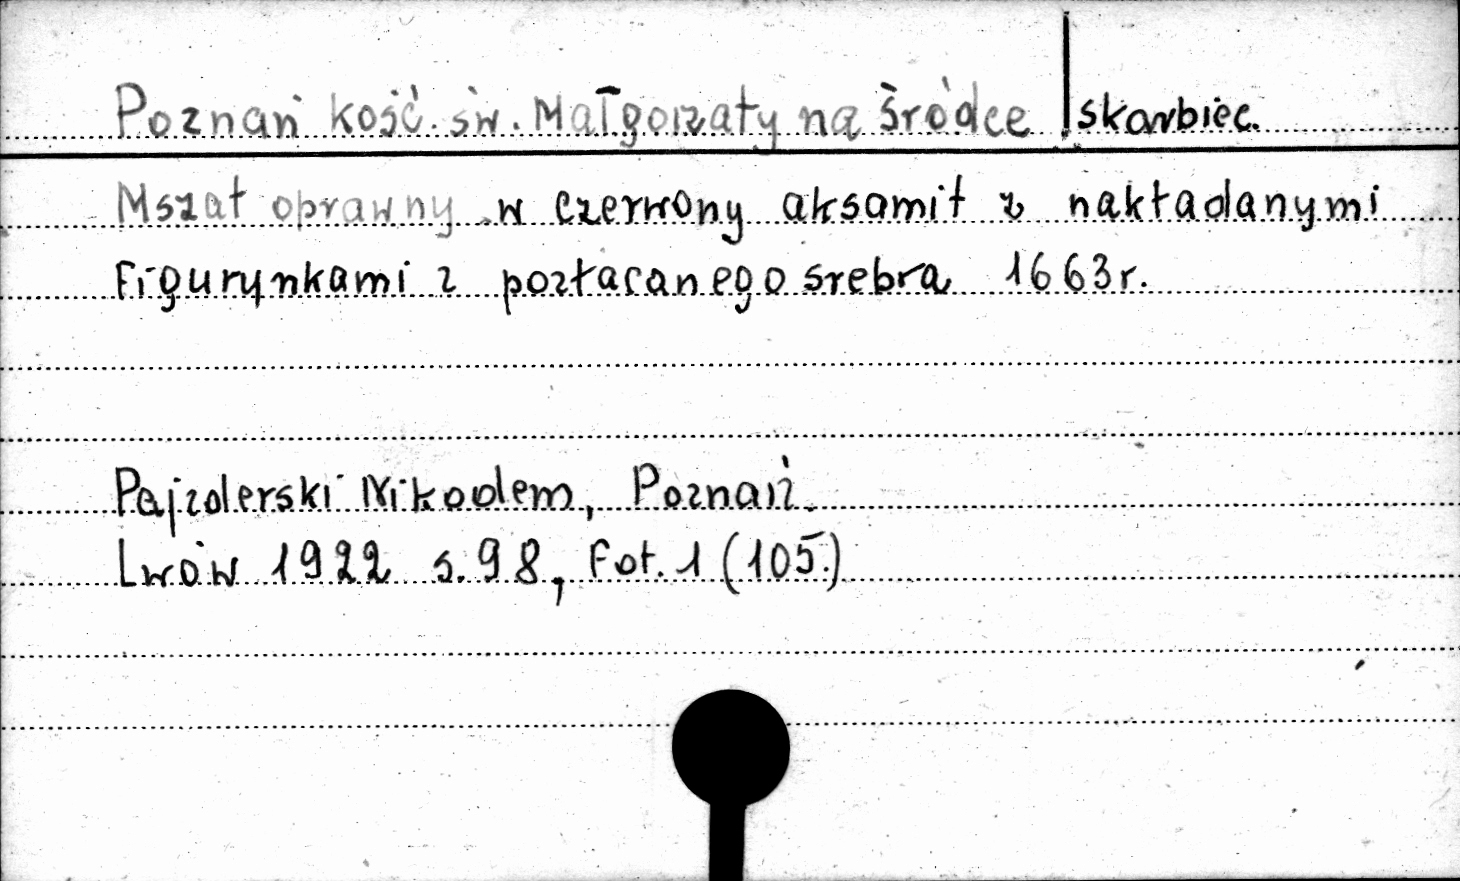 Poznań kość. św. Małgorzaty na Śródce skarbiec.
Mszał oprawny w czerwony aksamit z nakładanymi
figurynkami z pozłacanego srebra 1663 r.
Pajzderski Nikodem, Poznań.
Lwów 1922 s. 98, fot. 1 (105.)